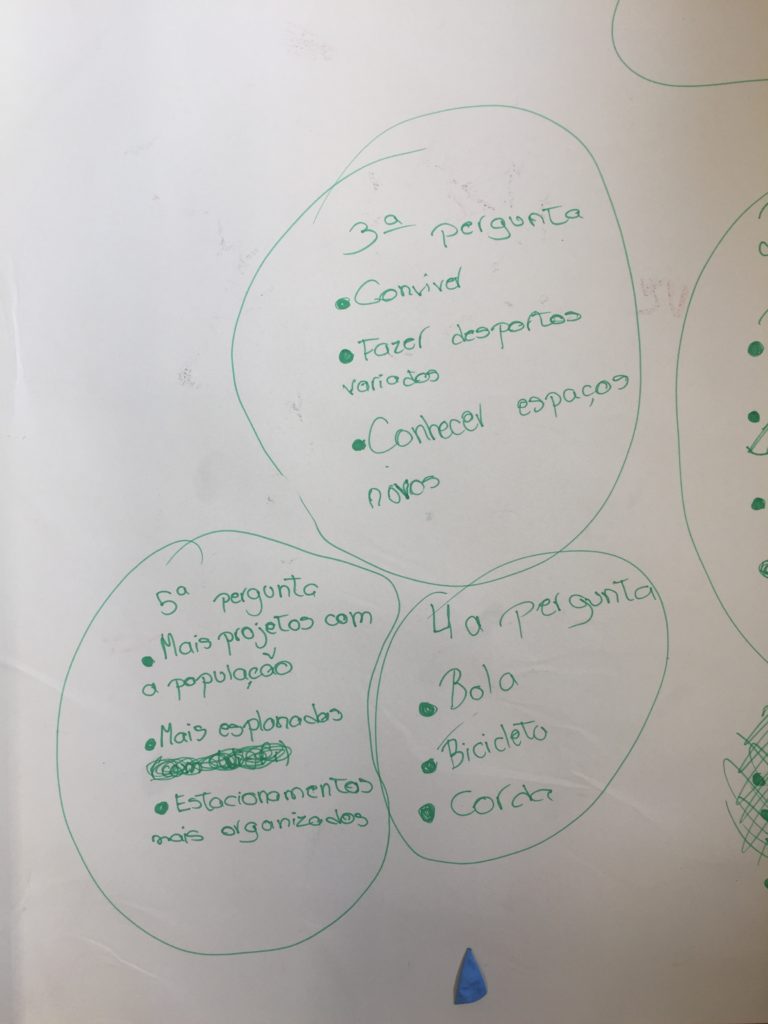 3ª pergunta
• Conviver
• Fazer desportos
variados
• Conhecer espaços
novos
5ª pergunta
• Mais projetos com
a população
• Mais esplanadas
• Estacionamentos
mais organizados
4ª pergunta
• Bola
• Bicicleta
• Corda